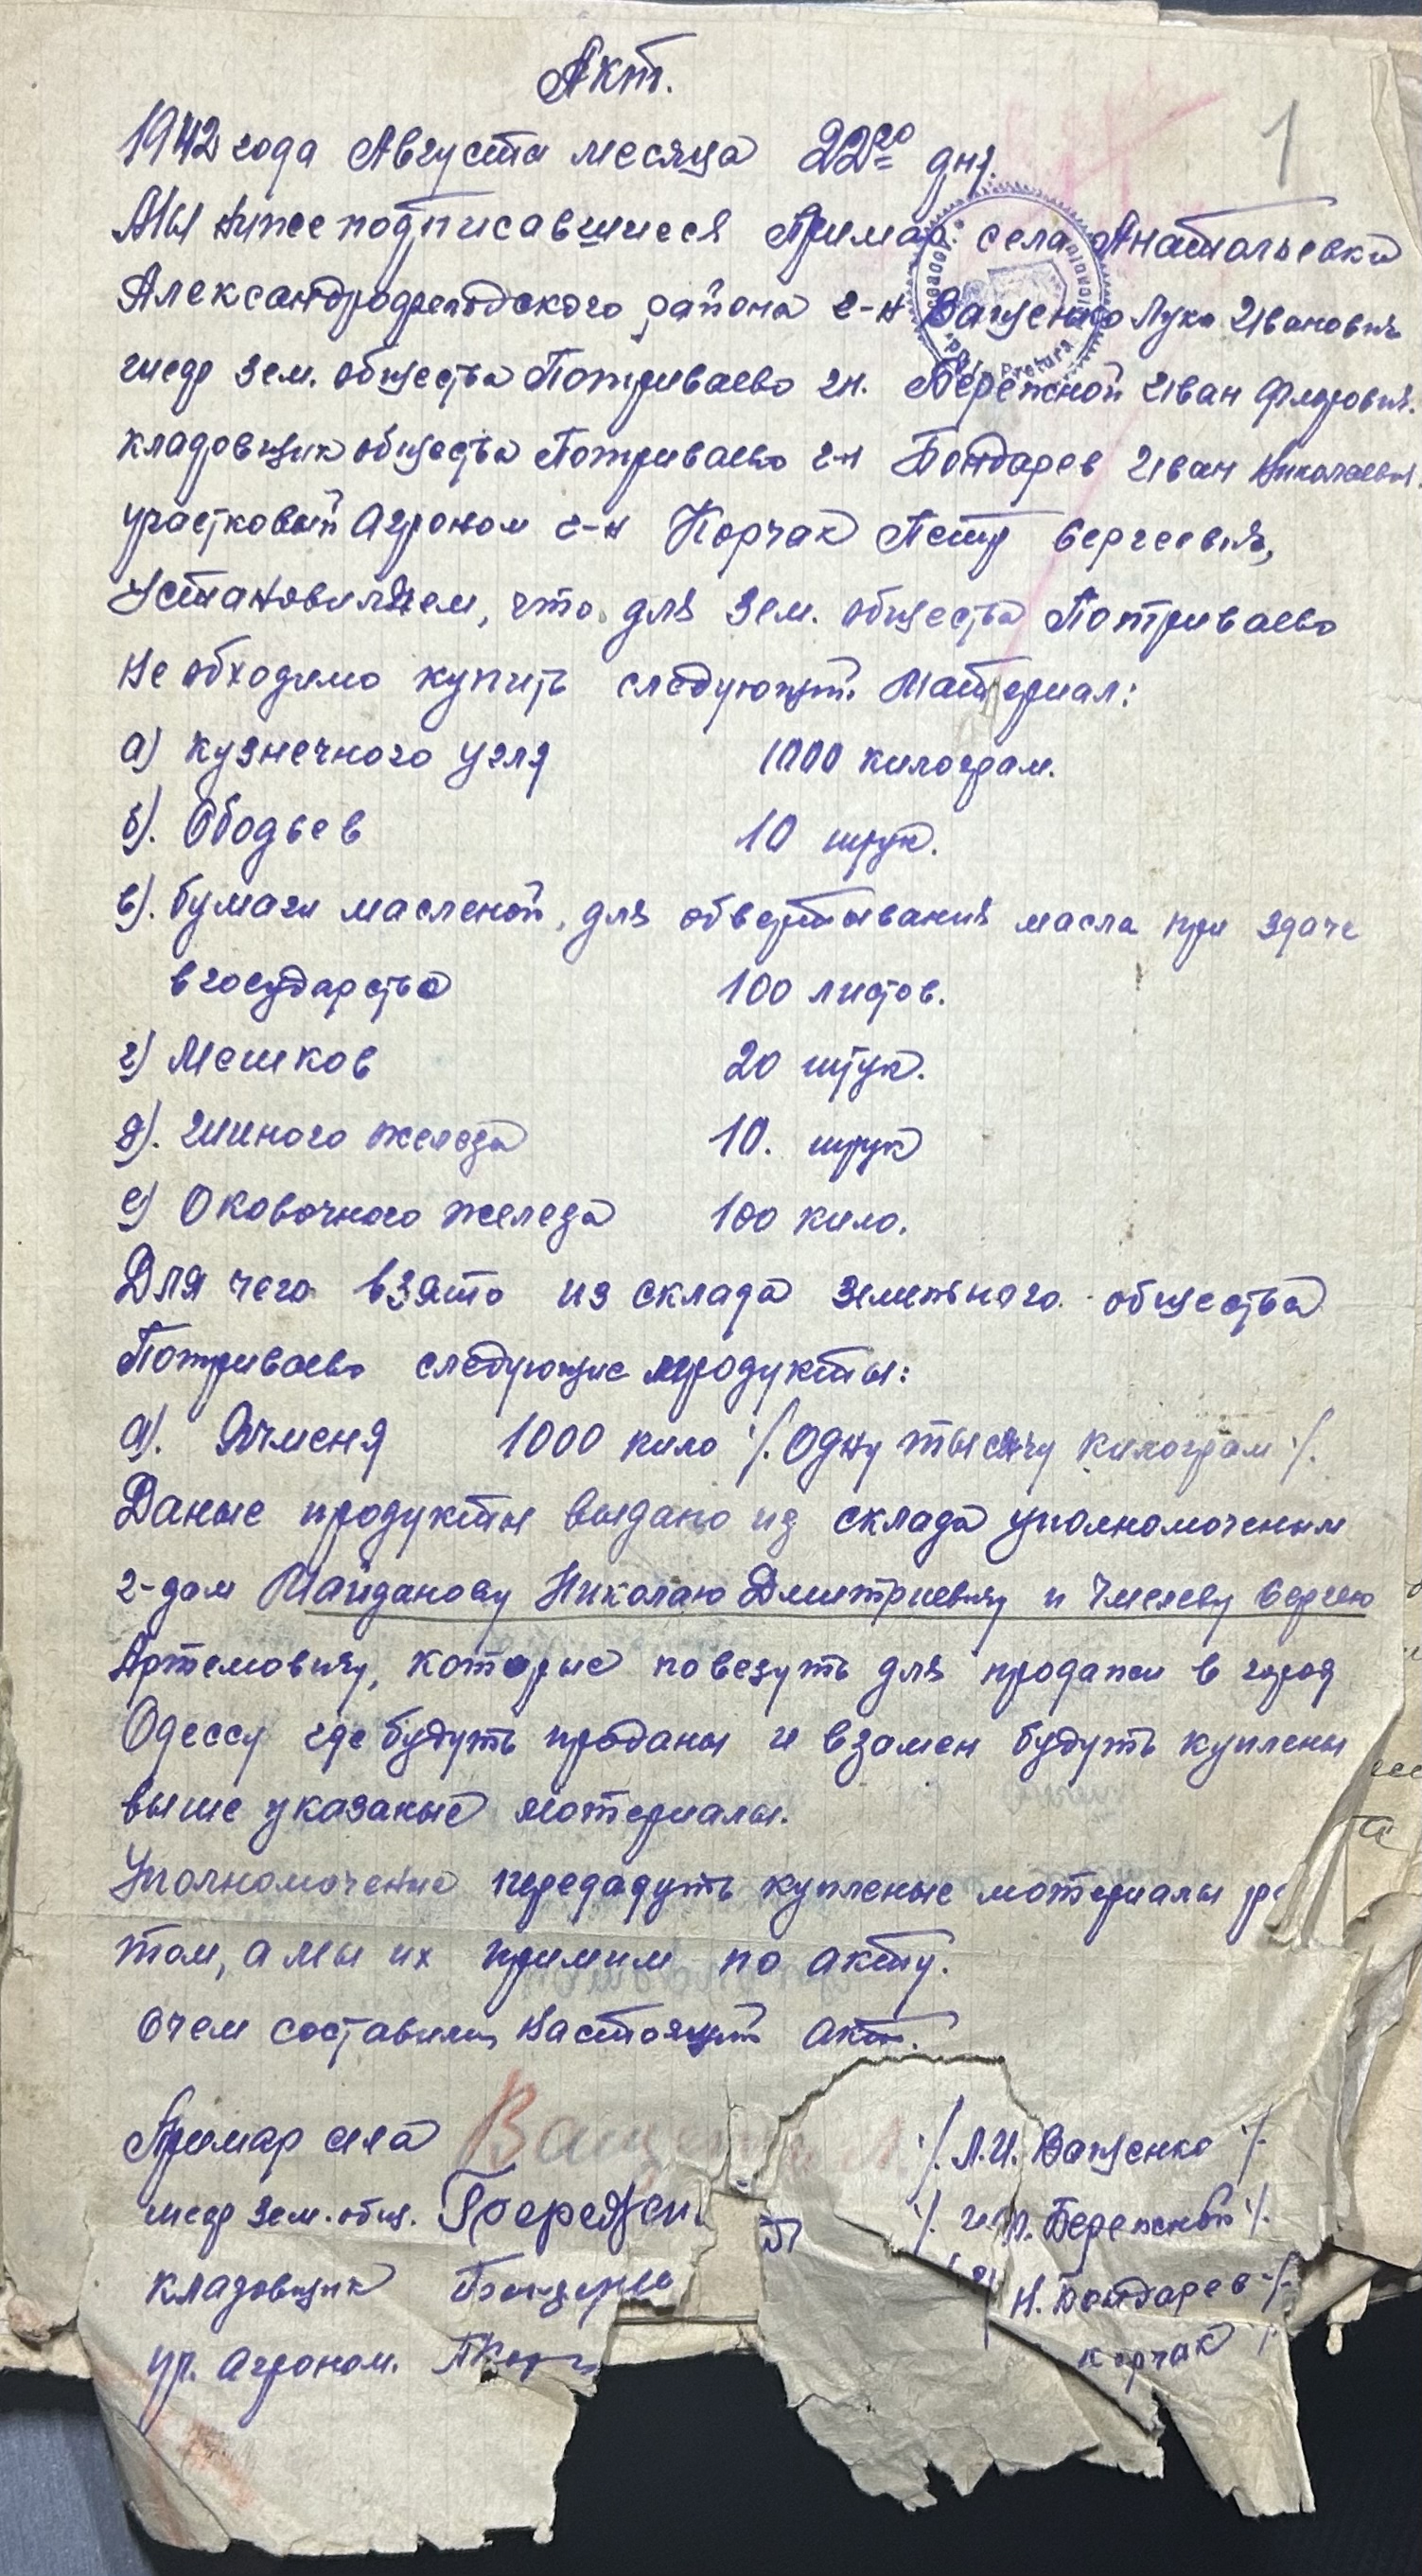 Акт.
1
1942 года Августа месяца 22го дня.
Мы нижеподписавшиеся Примар села Анатольевки
Александрофельдского района г-н Ващенко Лука Иванович
шеф зем. общества Потриваево гн. Бережной Иван Флорович.
кладовщик общества Потриваево г-н Бондарев Иван Николаевич.
участковый Агроном г-н Корчак Петр Сергеевич,
Установиляем, что для зем. общества Потриваево
не обходимо купить следующий Материал:
а) кузнечного угля 1000 килограм.
б). Ободьев 10 штук.
в). бумаги масленой, для обвертывания масла при здаче
в государство 100 листов.
г) Мешков 20 штук.
д). Шиного железа 10. штук
е) Оковочного железа 100 кило.
Для чего взято из склада земельного общества
Потриваево следующие продукты:
а). Ячменя 1000 кило /. Одну тысячу килограм ./.
Даные продукты выдано из склада уполномоченым
г-дам Майданову Николаю Дмитриевичу и Чмелеву Сергею
Артемовичу, которые повезуть для продажи в город
Одессу где будуть проданы и взамен будуть куплены
выше указаные мотериалы.
Уполномочение передадуть купленые мотериалы
том, а мы их примим по акту.
Очем составили настоящий акт.
Примар села /. Л.И. Ващенко ./.
шеф зем. общ. Бережн /. И. Бережной ./.
кладовщик Н. Бондарев ./.
уч. агроном. корчак /